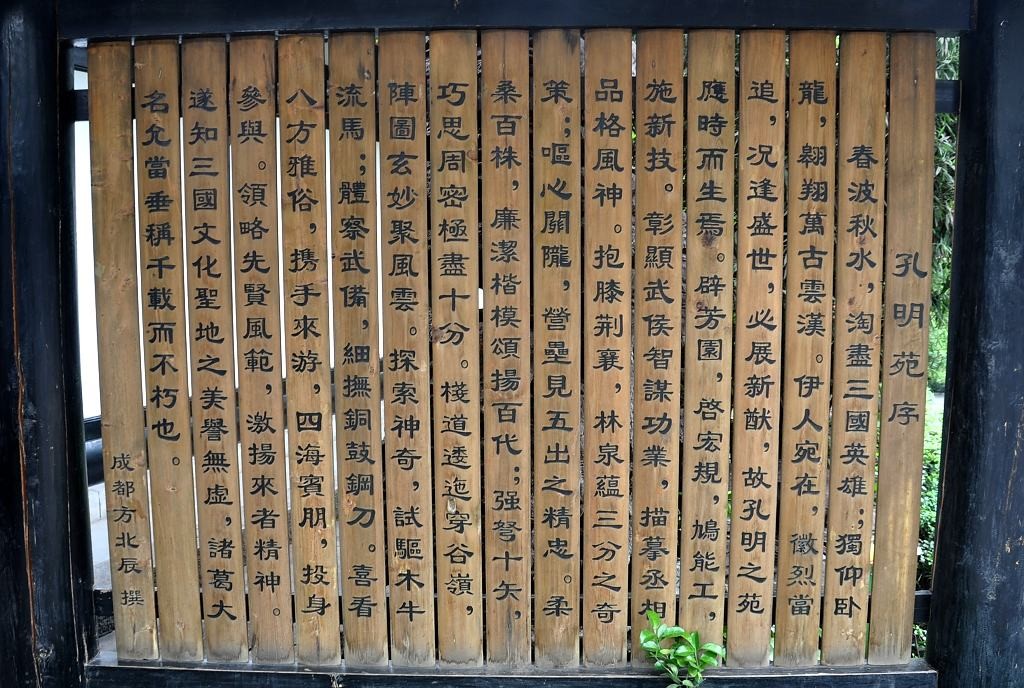 孔明苑序
春波秋水，淘盡三國英雄；獨仰卧
龍，翱翔萬古雲漢。伊人宛在，徽烈當
追，况逢盛世，必展新猷，故孔明之苑
應時而生焉。辟芳園，啓宏規，鳩能工，
施新技。彰顯武侯智謀功業，描摹丞相
品格風神。抱膝荆襄，林泉蘊三分之奇
策；嘔心關隴，營壘見五出之精忠。柔
桑百株，廉潔楷模頌揚百代；强弩十矢，
巧思周密極盡十分。棧道逶迤穿谷嶺，
陣圖玄妙聚風雲。探索神奇，試驅木牛
流馬；體察武備，細撫銅鼓鋼刀。喜看
八方雅俗，携手來游，四海賓朋，投身
參與。領略先賢風範，激揚來者精神。
遂知三國文化聖地之美譽無虚，諸葛大
名允當垂稱千載而不朽也。
成都方北辰 撰